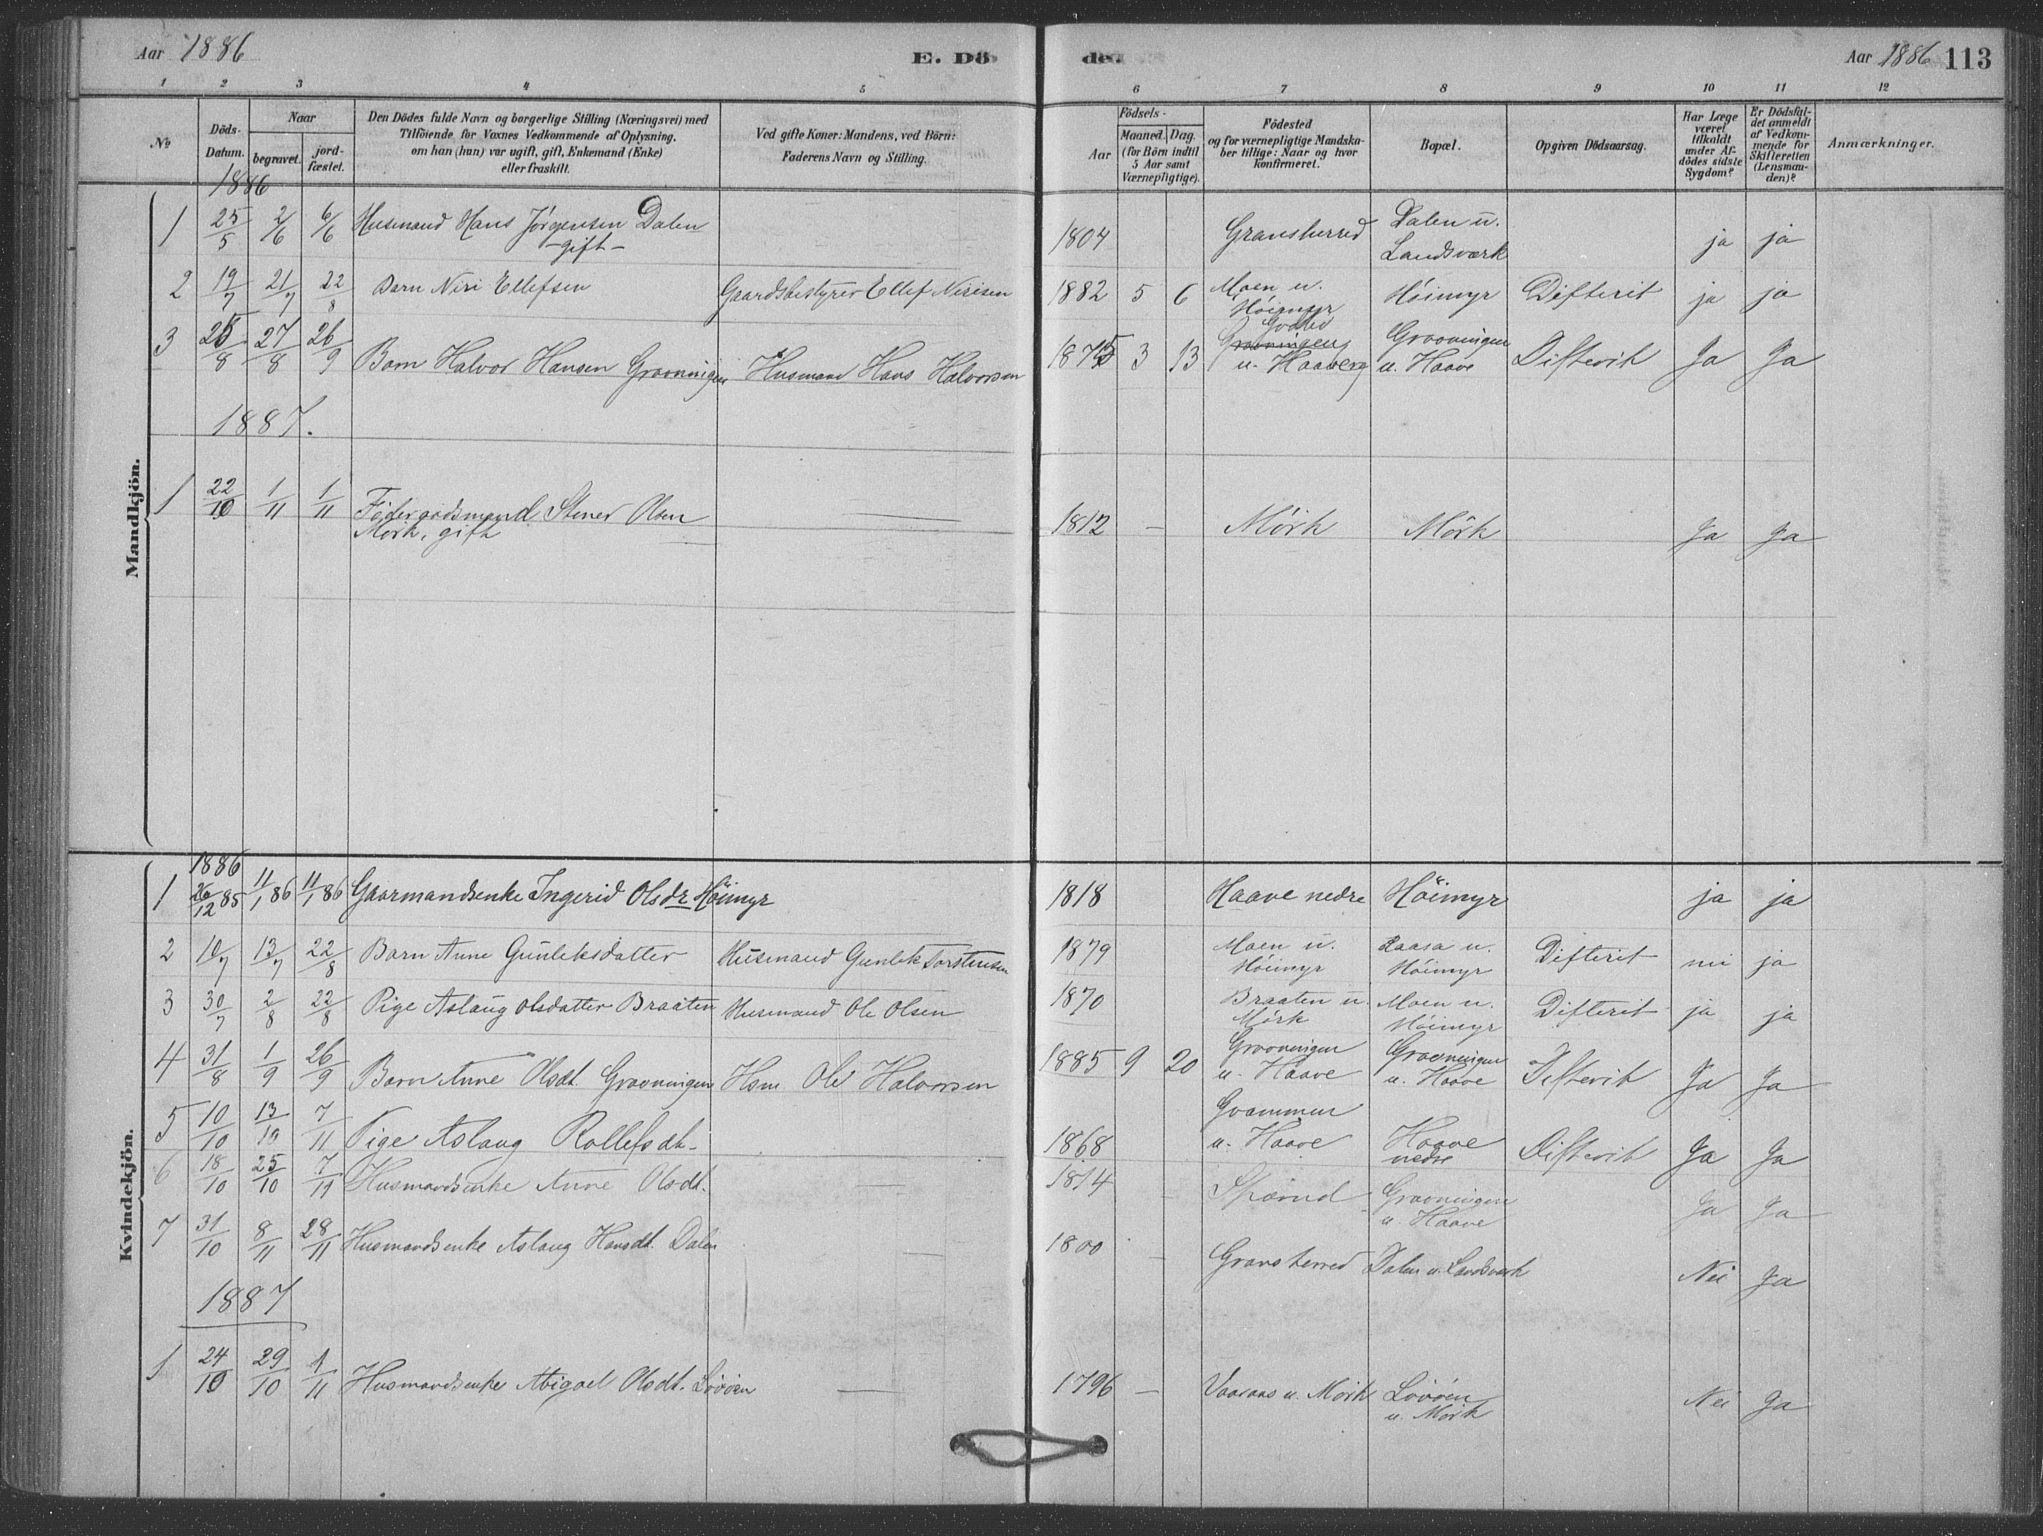 Aar 1886
E. Dö
de.
Aar 1886 113
1 2 3 4 5 6 7 8 9 10 11 12
№
Döds-
Datum.
Naar
begravet.
jord-
fæstet.
Den Dödes fulde Navn og borgerlige Stilling (Næringsvei) med
Tilföiende for Voxnes Vedkommende af Oplysning.
om han (hun) var ugift, gift, Enkemand (Enke)
eller fraskilt.
Ved gifte Koner: Mandens, ved Börn:
Faderens Navn og Stilling.
Födsels-
Aar
Maaned. Dag.
(for Börn indtil
5 Aar samt
Værnepligtige).
Födested
og for værnepligtige Mandska-
ber tillige: Naar og hvor
konfirmeret.
Bopæl.
Opgiven Dödsaarsag.
Har Læge
været
tilkaldt
under Af-
dödes sidste
Sygdom?
Er Dödsfal-
det anmeldt
af Vedkom-
mende for
Skifteretten
(Lensman-
den)?
Anmærkninger.
Mandkjön.
1886
1 25/5 2/6 6/6 Husmand Hans Jørgensen Dalen
-gift-
1804 Gransherred Dalen u.
Landsværk ja ja
2 19/7 21/7 22/8 Barn Niri Ellefsen Gaardsbestyrer Ellef Nirisen 1882 5 6 Moen u.
Höimyr Höimyr Difterit ja ja
3 25/8 27/8 26/9 Barn Halvor Hansen Grovningen Husmand Hans Halvorsen 1875 3 13
Grovningen
u. Haaberg Grovningen
u. Haave Difterit Ja Ja
1887.
1 22/10 1/11 1/11 Födergodsmand Stener Olsen
Mörk, gift 1812 — Mörk Mörk Ja Ja
Kvindekjön.
1886
1 26/12 85 11/1 86 11/1 86 Gaarmandsenke Ingerid Olsdr Höimyr 1818 Haave nedre Höimyr ja ja
2 10/7 13/7 22/8 Barn Anne Gunleksdatter Husmand Gunlek Torstensen 1879 Moen u.
Höimyr Raasa u.
Höimyr Difterit nei ja
3 30/7 2/8 22/8 Pige Aslaug Olsdatter Braaten Husmand Ole Olsen 1870 Braaten u.
Mörk Moen u.
Höimyr Difterit ja ja
4 31/8 1/9 26/9 Barn Anne Olsdt. Grovningen Hsm. Ole Halvorsen 1885 9 20 Grovningen
u. Haave Grovningen
u. Haave Difterit Ja Ja
5 10/10 13/10 7/11 Pige Aslaug Rollefsdt. 1868 Gvammen
u. Haave Haave
nedre Difterit Ja Ja
6 18/10 25/10 7/11 Husmandsenke Anne Olsdt. — 1814 — Grovningen
u. Haave Ja Ja
7 31/10 8/11 28/11 Husmandsenke Aslaug Hansdt. Dalen 1800 — Gransherred Dalen u. Landsverk Nei Ja
1887
1 24/10 29/10 1/11 Husmandsenke Abigael Olsdt. Lövöen — 1796 — Vaaraas u. Mörk Lövöen
u. Mörk Nei Ja